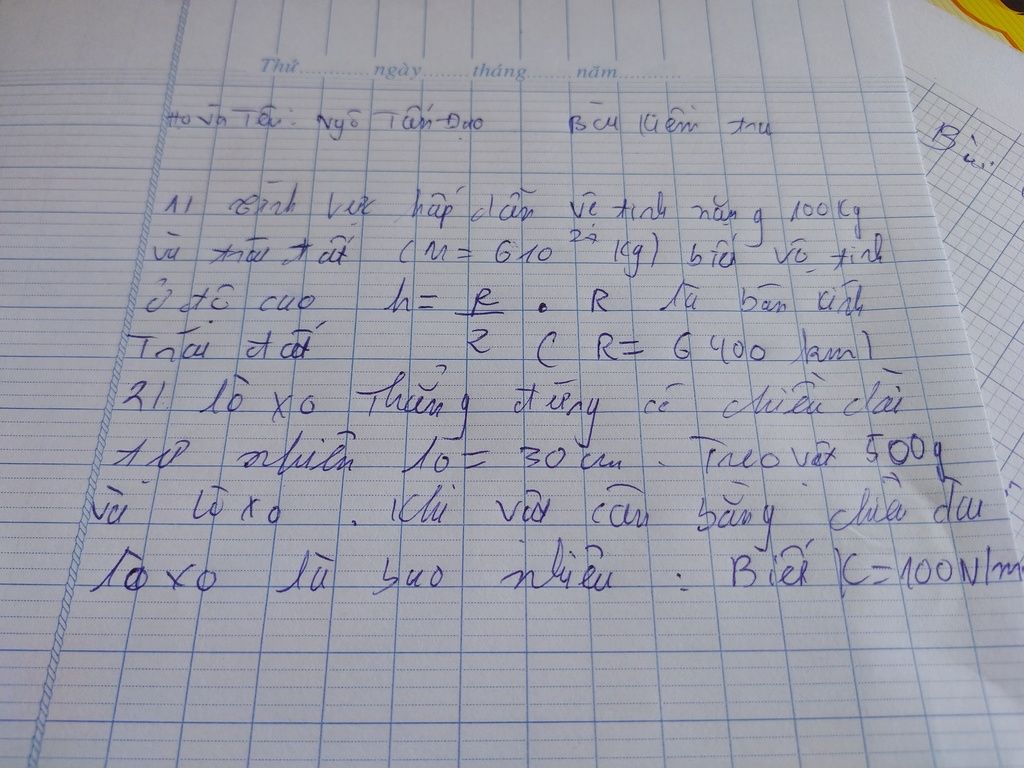 Thứ............ngày.......tháng......năm..........
Họ và Tên: Ngô Tấn Đạo Bài Kiểm tra
1) Tính lực hấp dẫn vệ tinh nặng 100Kg
và trái đất (M = 6 10²⁴ Kg) biết vệ tinh
ở độ cao h = R/2 . R là bán kính
Trái đất ( R = 6 400 km)
2) lò xo Thẳng đứng có chiều dài
tự nhiên lo = 30 cm . Treo vật 500g
và lò xo . Khi vật cân bằng chiều dài
lò xo là bao nhiêu . Biết K = 100N/m
Bài